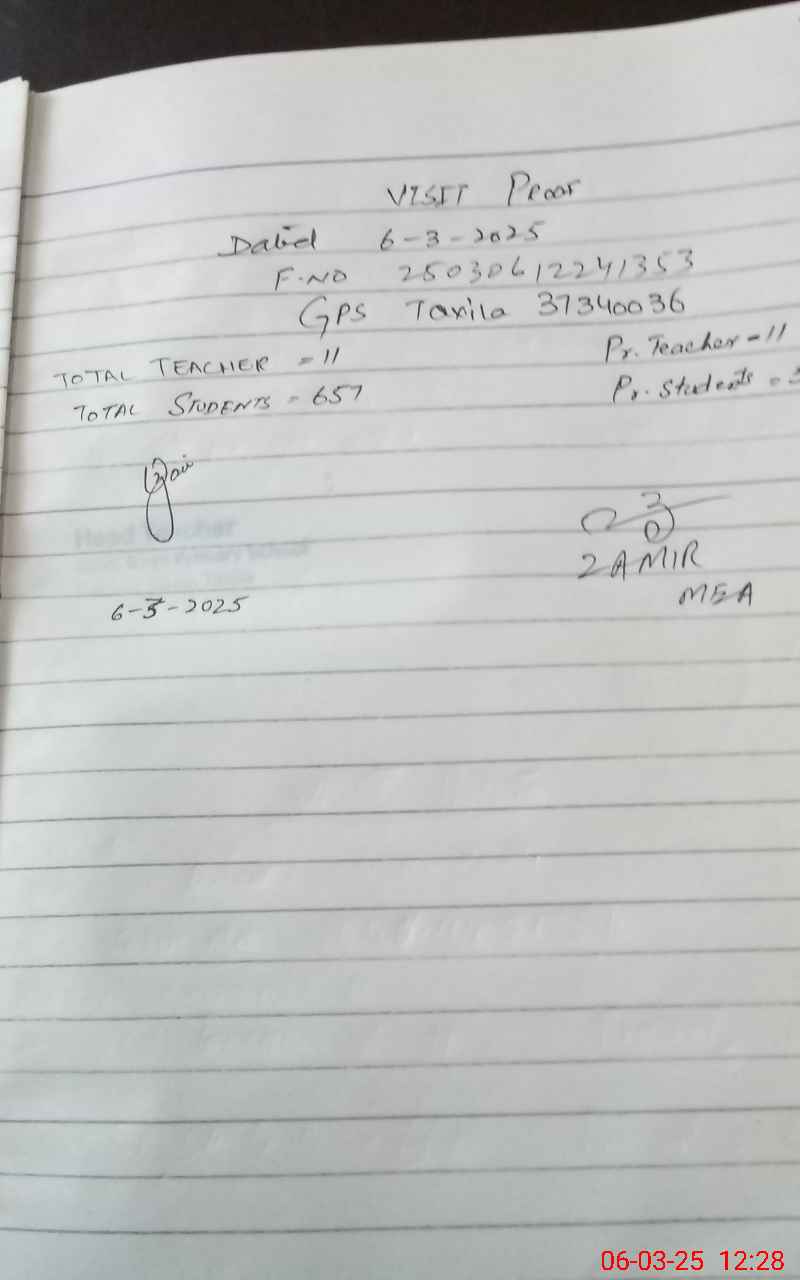 VISIT Proof
Dated 6-3-2025
F.NO 25030612241353
GPS Taxila 37340036
TOTAL TEACHER = 11 Pr. Teacher = 11
TOTAL STUDENTS = 657 Pr. Students =
Head Teacher
6-3-2025
ZAMIR
MEA
06-03-25 12:28